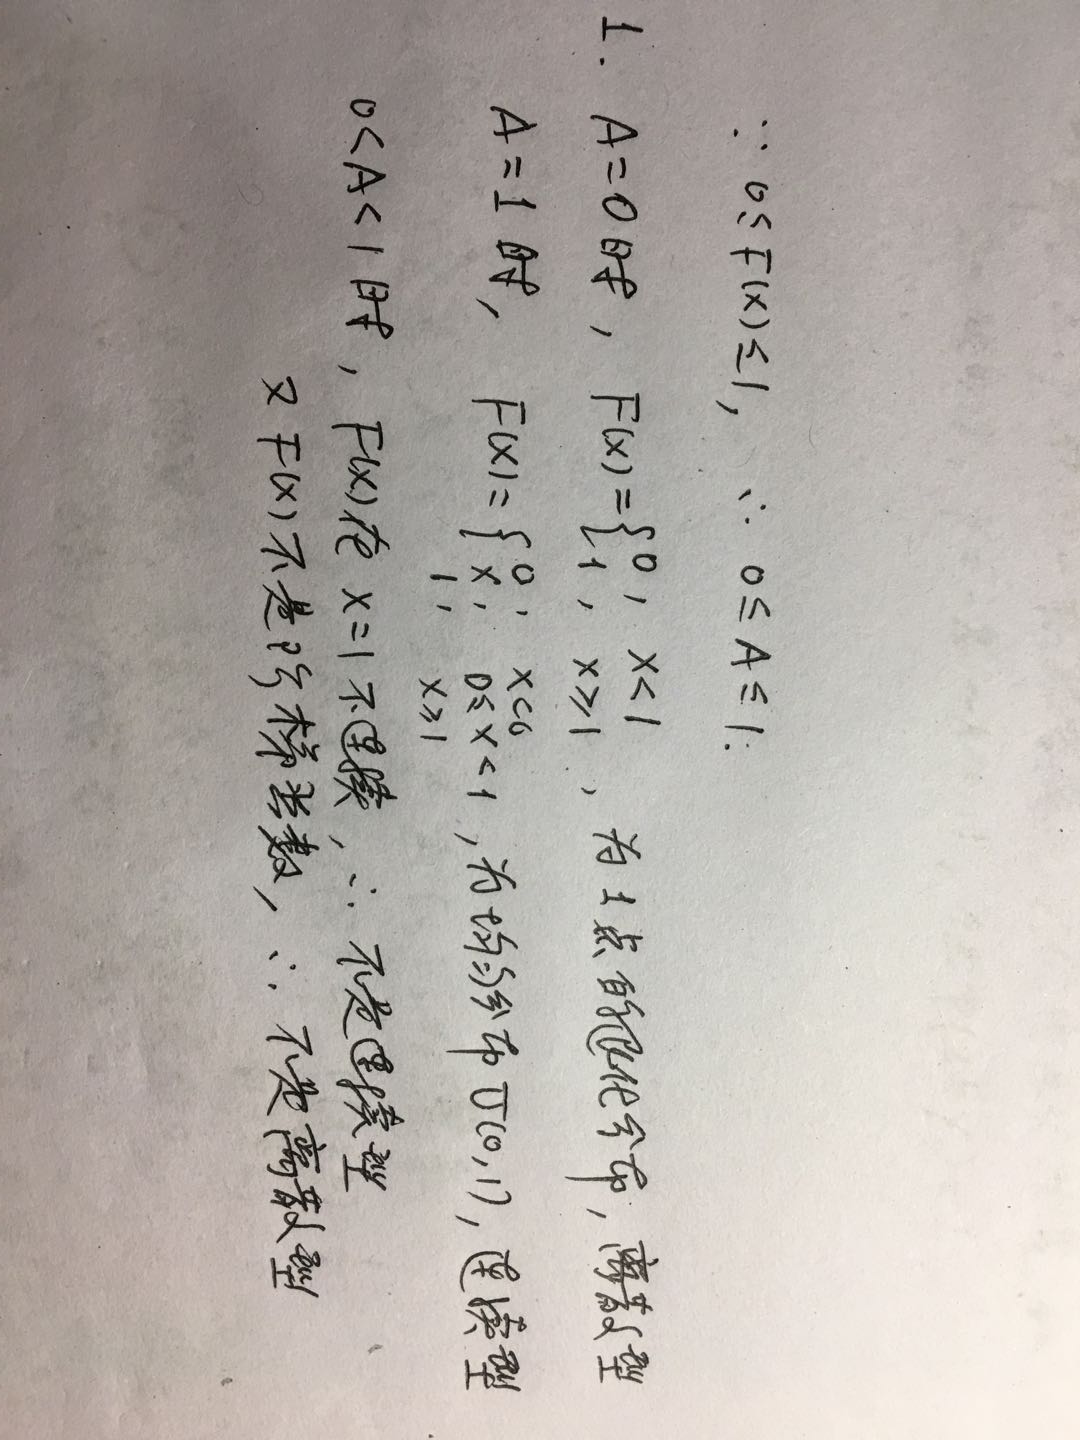 ∵ 0≤F(x)≤1, ∴ 0≤A≤1.
1. A=0时, F(x)={0, x<1
1, x≥1, 为1点的退化分布, 离散型
A=1时, F(x)={0, x<0
x, 0≤x<1, 为均匀分布U(0,1), 连续型
1, x≥1
0<A<1时, F(x)在x=1不连续, ∴ 不是连续型
又F(x)不是阶梯函数, ∴ 不是离散型